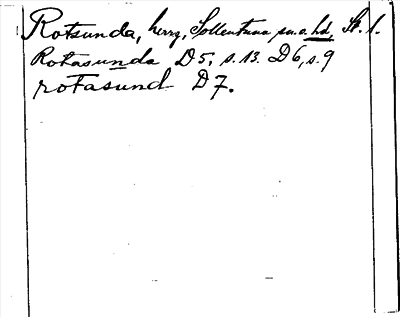 Rotsunda, herrg, Sollentuna sn. o. hd, St. l.
Rotasunda D5, s. 13. D6, s. 9
rotasund D7.